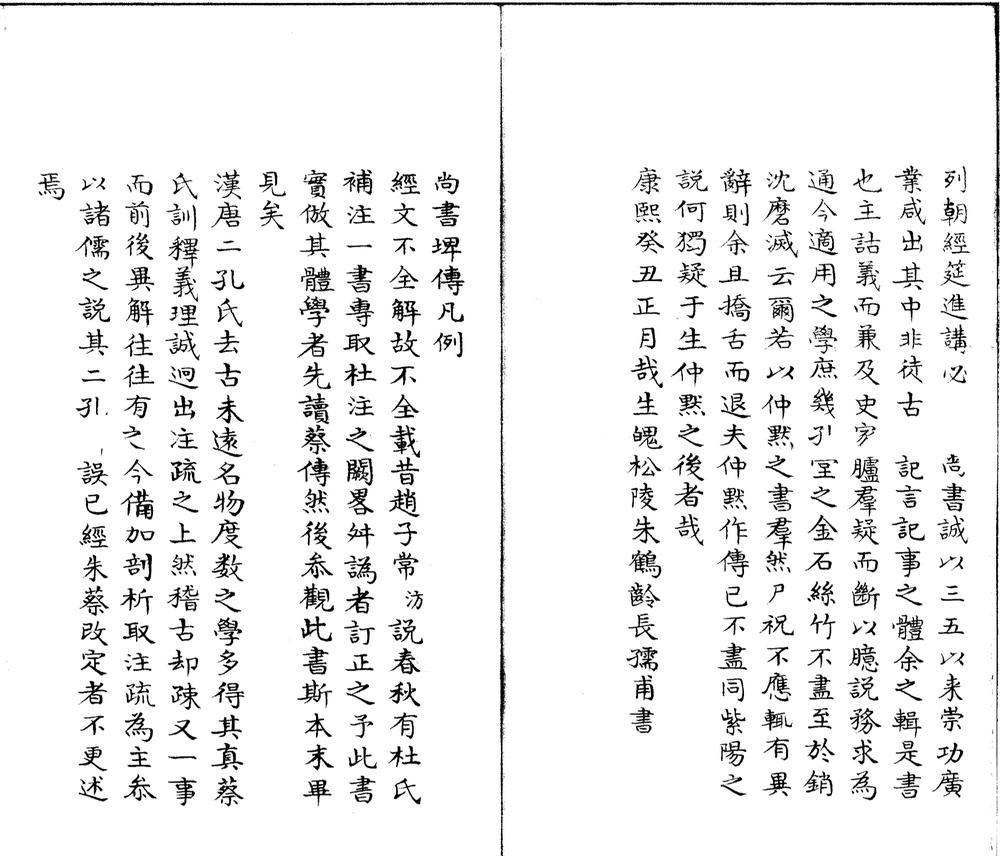 列朝經筵進講必　尚書誠以三五以来崇功廣
業咸出其中非徒古　記言記事之體余之輯是書
也主詁義而兼及史家臚羣疑而斷以臆説務求為
通今適用之學庶幾孔室之金石絲竹不盡至於銷
沈磨滅云爾若以仲黙之書羣然尸祝不應輒有異
辭則余且撟舌而退夫仲黙作傳已不盡同紫陽之
説何獨疑于生仲黙之後者哉
康熙癸丑正月哉生魄松陵朱鶴齡長孺甫書
尚書埤傳凡例
經文不全解故不全載昔趙子常汸説春秋有杜氏
補注一書專取杜注之闕畧舛譌者訂正之予此書
實倣其體學者先讀蔡傳然後叅觀此書斯本末畢
見矣
漢唐二孔氏去古未遠名物度数之學多得其真蔡
氏訓釋義理誠迥出注疏之上然稽古却疎又一事
而前後異解往往有之今備加剖析取注疏為主叅
以諸儒之説其二孔　誤已經朱蔡改定者不更述
焉